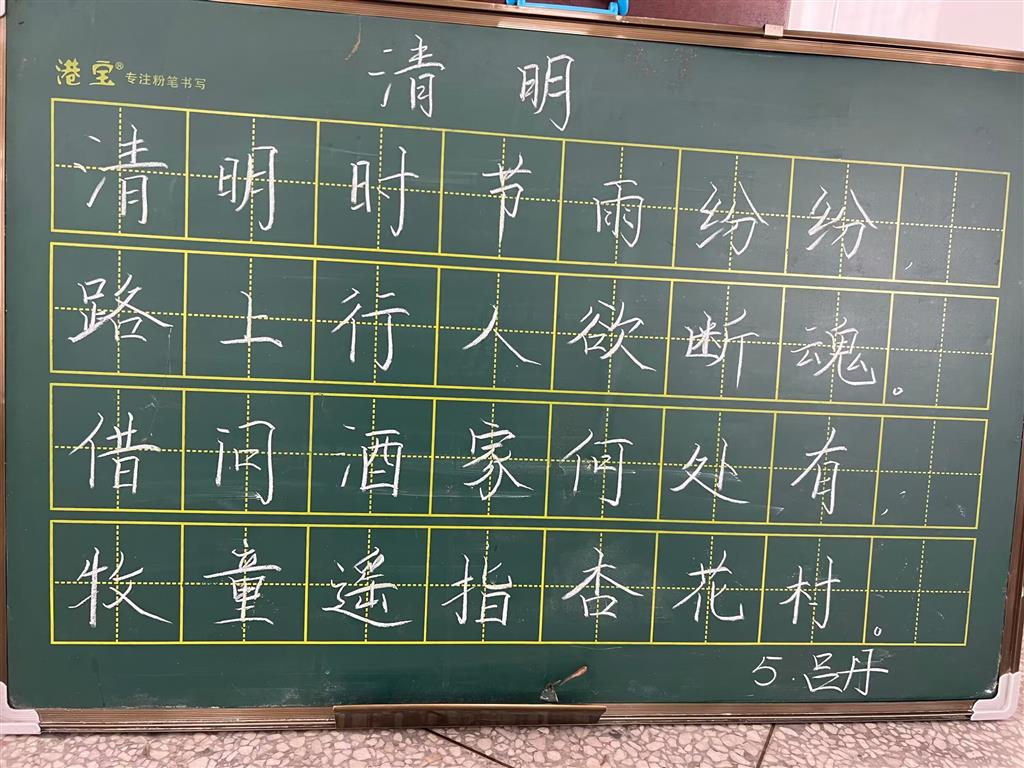 清明
港宝® 专注粉笔书写
清明时节雨纷纷,
路上行人欲断魂。
借问酒家何处有,
牧童遥指杏花村。
5.吕丹